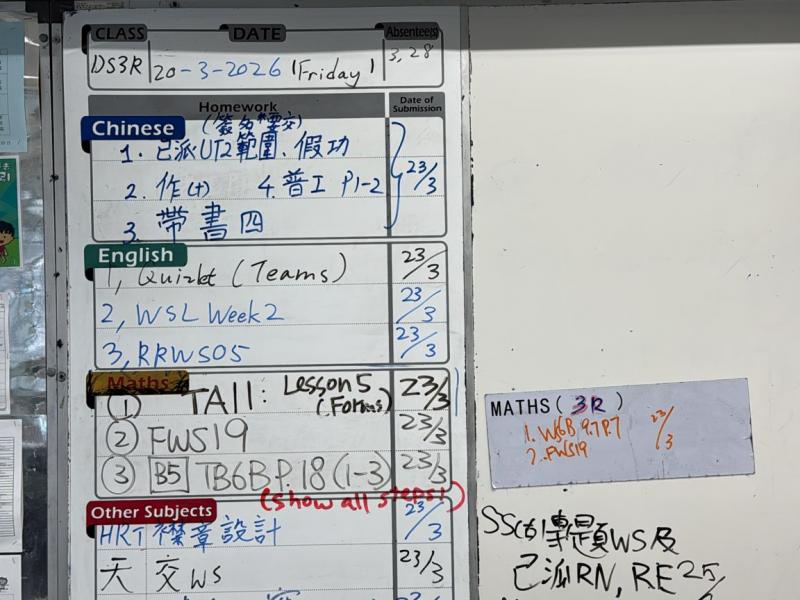 CLASS DATE Absentee(s)
DS3R 20-3-2026 (Friday) 3, 28
Homework Date of Submission
Chinese (簽名要交)
1. 已派UT2範圍、假功
2. 作(十) 4. 普工 P1-2 23/3
3. 帶書四
English
1, Quizlet (Teams) 23/3
2, WSL Week 2 23/3
3, RRWS05 23/3
Maths
① TA11: Lesson 5 (Forms) 23/3
② FWS19 23/3
③ B5 TB6B P.18 (1-3) 23/3
(show all steps!)
Other Subjects
HRT 襟章設計 23/3
天 交WS 23/3
MATHS (3R)
1. W6B 9.7 P.7 23/3
2. FWS19
專題WS及
已派RN, RE 25/